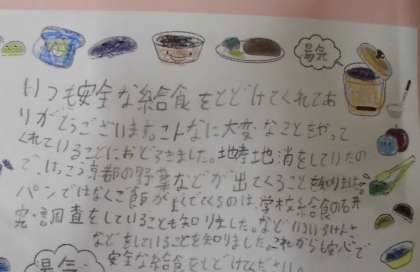 いつも安全な給食をとどけてくれてあ
りがとうございます。こんなに大変なことをやって
くれていることにおどろきました。地産地消をしていたの
で、けっこう京都の野菜などが出てくることを知りました。
パンではなくご飯が出てくるのは、学校給食の研
究・調査をしていることも知りました。など いろいろなこと
などをしていることを知りました。これからも安心で
安全な給食をとどけてください。
湯気
湯気